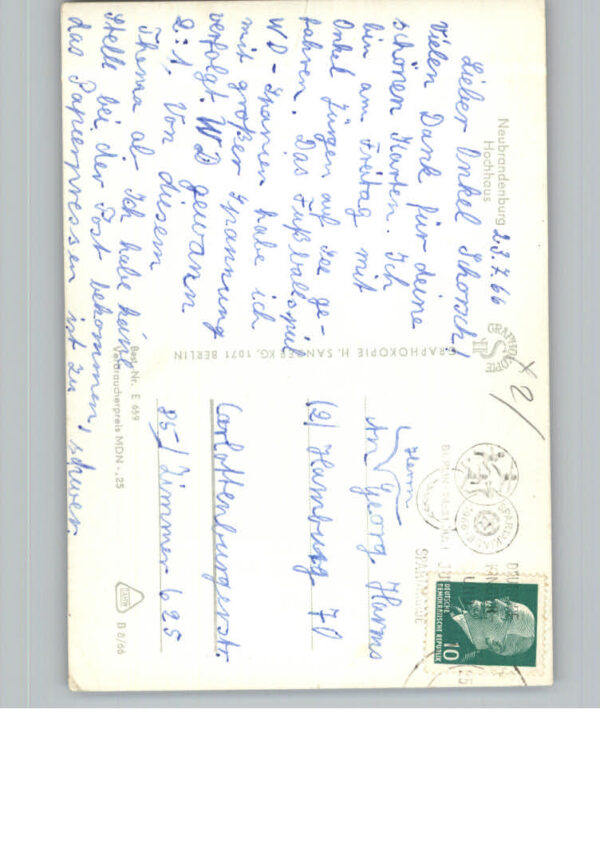 Neubrandenburg
Hochhaus
23.7.66
Lieber Onkel Schorsch,
Vielen Dank für deine
schönen Karten. Ich
bin am Freitag mit
Onkel Jürgen auf See ge-
fahren. Das Fußballspiel
WD-Spanien habe ich
mit großer Spannung
verfolgt. WD gewann
2:1. Von diesem
Thema ab. Ich habe keine
Stelle bei der Post bekommen,
das Papierpressen ist zu schwer.
GRAPHOKOPIE
GRAPHOKOPIE H. SANDER KG. 1071 BERLIN
Best. Nr. E 659
Verbraucherpreis MDN -,25
x 2/
Herrn
An Georg Harms
(2) Hamburg 70
Charlottenburgerstr.
25/Zimmer 625
B 6/66
DEUTSCHE
DEMOKRATISCHE REPUBLIK
10